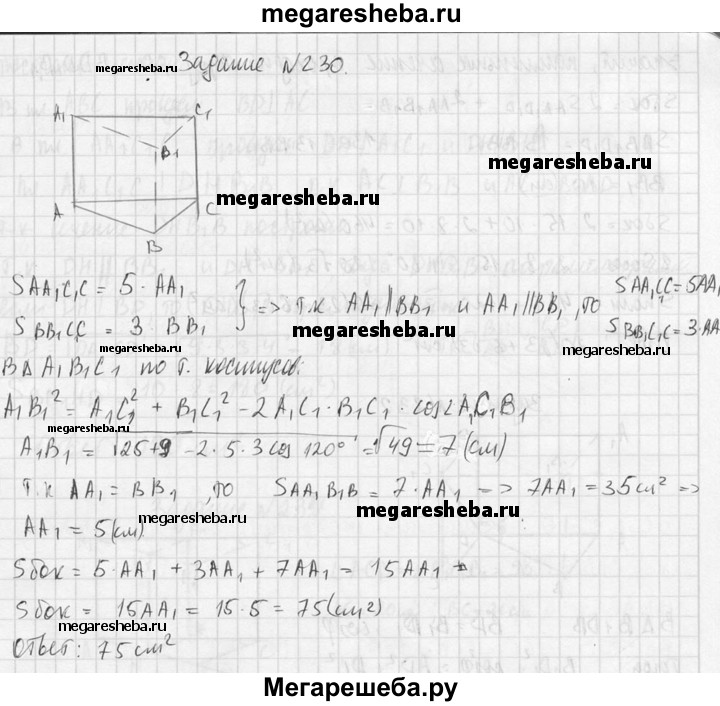 megaresheba.ru
Задание №230.
megaresheba.ru
A₁ C₁
B₁
megaresheba.ru
megaresheba.ru
A C
B
S AA₁C₁C = 5 · AA₁
S BB₁CC₁ = 3 · BB₁
} => т.к AA₁ || BB₁ и AA₁ || BB₁, то
S AA₁CC = 5AA₁
S BB₁C₁C = 3·AA
megaresheba.ru
megaresheba.ru
В Δ A₁B₁C₁ по т. косинусов:
A₁B₁² = A₁C₁² + B₁C₁² - 2A₁C₁ · B₁C₁ · cos∠A₁C₁B₁
A₁B₁ = √25+9 - 2·5·3 cos 120° = √49 = 7 (см)
megaresheba.ru
т.к AA₁ = BB₁, то S AA₁B₁B = 7·AA₁ -> 7AA₁ = 35см² =>
megaresheba.ru
megaresheba.ru
AA₁ = 5(см)
Sбок = 5·AA₁ + 3AA₁ + 7AA₁ = 15AA₁
Sбок = 15AA₁ = 15·5 = 75(см²)
megaresheba.ru
Ответ: 75см²
Мегарешеба.ру